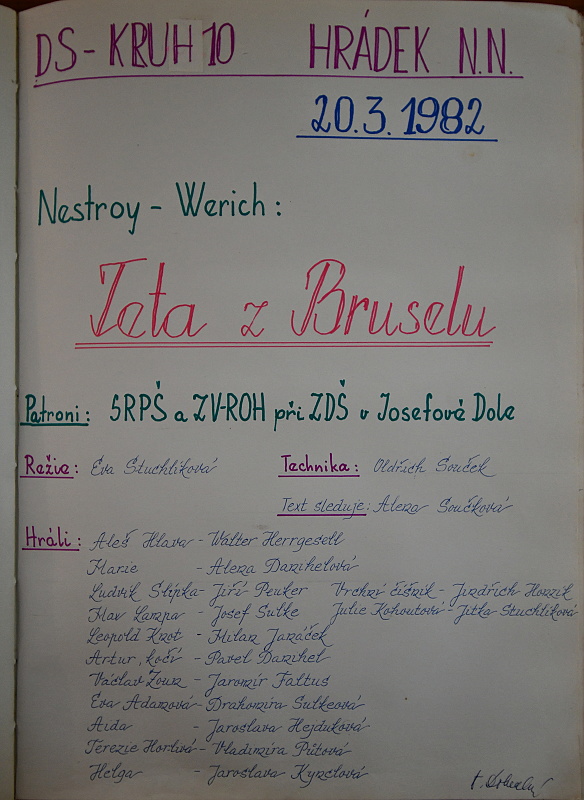 DS - KRUH 10 HRÁDEK N.N.
20.3.1982
Nestroy - Werich:
Teta z Bruselu
Patroni: SRPŠ a ZV-ROH při ZDŠ v Josefově Dole
Režie: Eva Stuchlíková Technika: Oldřich Souček
Text sleduje: Alena Součková
Hráli: Aleš Hlava - Walter Herrgesell
Marie - Alena Danihelová
Ludvík Slípka - Jiří Peuker Vrchní číšník - Jindřich Honzík
Max Lampa - Josef Sulke Julie Kohoutová - Jitka Stuchlíková
Leopold Krot - Milan Janáček
Artur, kočí - Pavel Danihel
Václav Zoun - Jaromír Faltus
Eva Adamová - Drahomíra Sulkeová
Aida - Jaroslava Hejduková
Terezie Hortvá - Vladimíra Půtová
Helga - Jaroslava Kynclová